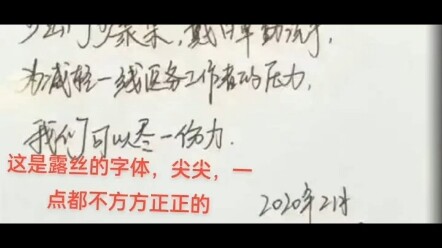 少出门少聚集,戴口罩勤洗手,
为减轻一线医务工作者的压力,
我们可以尽一份力.
这是露丝的字体,尖尖,一
点都不方方正正的
2020年2月